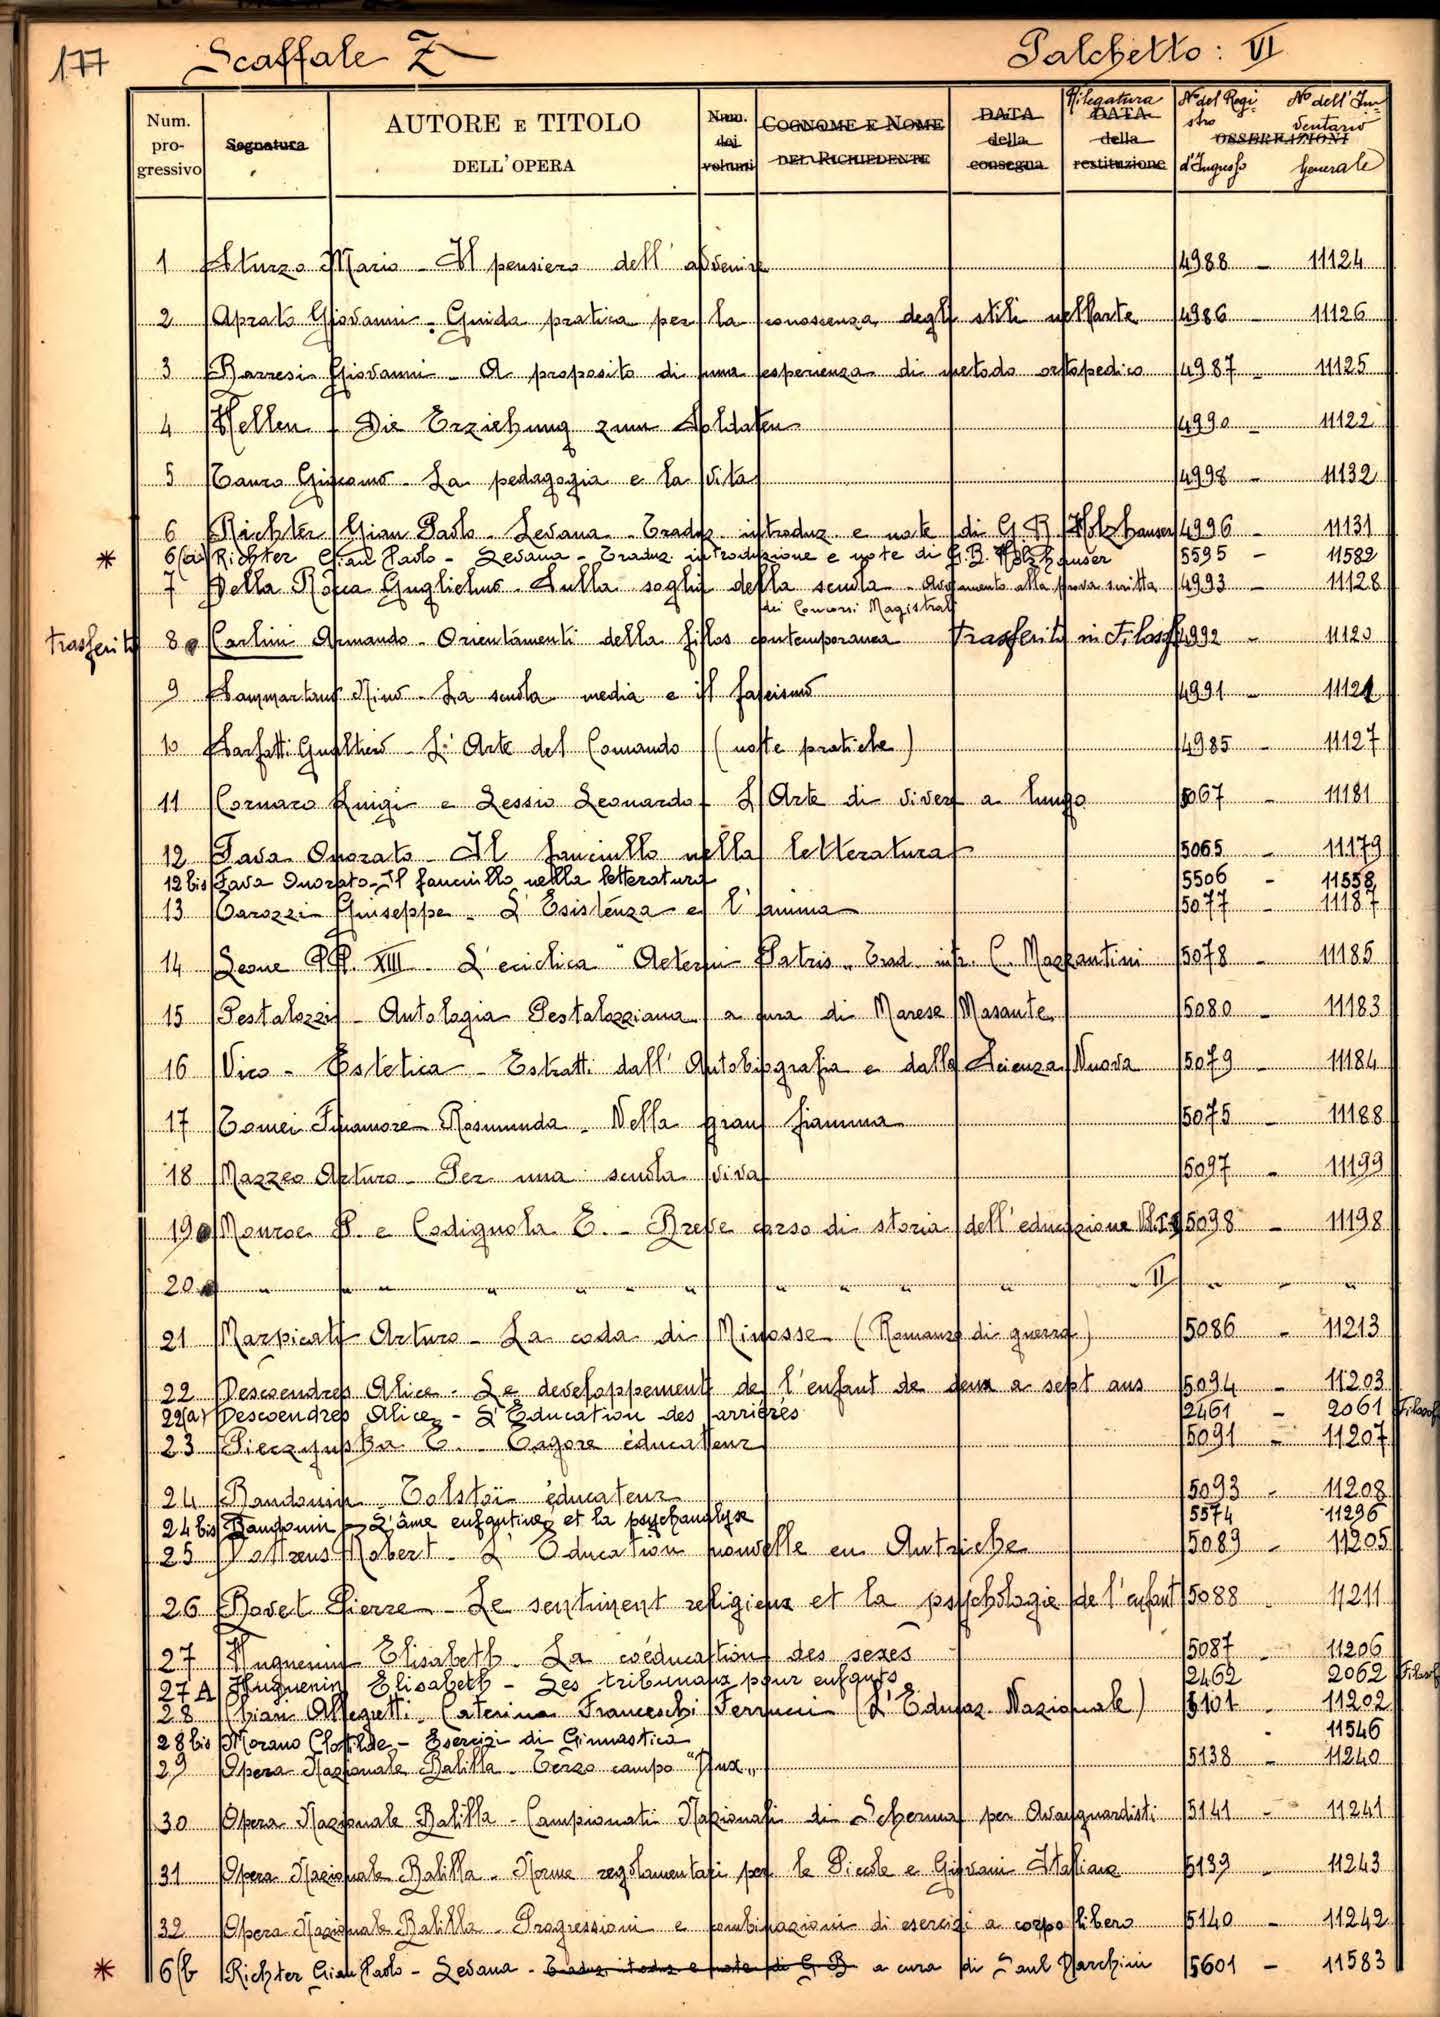 177 Scaffale Z Palchetto: VI
Num. progressivo Segnatura AUTORE E TITOLO DELL'OPERA Num. dei volumi COGNOME E NOME DEL RICHIEDENTE DATA della consegna Rilegatura DATA della restituzione N° del Registro d'Ingresso OSSERVAZIONI N° dell'Inventario Generale
1 Sturzo Mario - Il pensiero dell'avvenire 4988 - 11124
2 Aprato Giovanni - Guida pratica per la conoscenza degli stili nell'arte 4986 - 11126
3 Barresi Giovanni - A proposito di una esperienza di metodo ortopedico 4987 - 11125
4 Hellen - Die Erziehung zum Soldaten 4990 - 11122
5 Tauro Giacomo - La pedagogia e la vita 4998 - 11132
6 Richter Gian Paolo - Levana - Traduz. introduz e note di G.B. Holzhauser 4996 - 11131
* 6(a) Richter Gian Paolo - Levana - Traduz. introduzione e note di G.B. Holzhauser 5595 - 11582
7 Della Rocca Guglielmo - Sulla soglia della scuola - alla prova scritta 4993 - 11128
dei Concorsi Magistrali
trasferito 8 Carlini Armando - Orientamenti della filos contemporanea Trasferito in Filosof 4992 - 11120
9 Sammartano Nino - La scuola media e il fascismo 4991 - 11121
10 Sarfatti Gualtiero - L'Arte del Comando (note pratiche) 4985 - 11127
11 Cornaro Luigi e Lessio Leonardo - L'Arte di viver a lungo 5067 - 11181
12 Fava Onorato - Il fanciullo nella letteratura 5065 - 11179
12 bis Fava Onorato - Il fanciullo nella letteratura 5506 - 11558
13 Tarozzi Giuseppe - L'Esistenza e l'anima 5077 - 11187
14 Leone PP. XIII - L'eciclica "Aeterni Patris" Trad. intr. C. Mazzantini 5078 - 11185
15 Pestalozzi - Antologia Pestalozziana a cura di Marese Masante 5080 - 11183
16 Vico - Estetica - Estratti dall'Autobiografia e dalla Scienza Nuova 5079 - 11184
17 Tomei Finamore Rosmunda - Nella gran fiamma 5075 - 11188
18 Mazzeo Arturo - Per una scuola viva 5097 - 11199
19 Monroe P. e Codignola E. - Breve corso di storia dell'educazione Vol. I 5098 - 11198
20 " " " " " " " " " " " II " - "
21 Marpicati Arturo - La coda di Minosse (Romanzo di guerra) 5086 - 11213
22 Descoendres Alice - Le developpement de l'enfant de deux a sept ans 5094 - 11203
22(a) Descoendres Alice - L'Education des arriérés 2461 - 2061 Filosof
23 Pieczynska E. - Tagore éducateur 5091 - 11207
24 Baudouin - Tolstoï éducateur 5093 - 11208
24 bis Baudouin - L'âme enfantine et la psychanalyse 5574 11296
25 Dottrens Robert - L'Education nouvelle en Autriche 5089 - 11205
26 Bovet Pierre - Le sentiment religieux et la psychologie de l'enfant 5088 11211
27 Huguenin Elisabeth - La coéducation des sexes 5087 - 11206
27 A Huguenin Elisabeth - Les tribunaux pour enfants 2462 2062 Filosof
28 Chiari Allegretti - Caterina Franceschi Ferrucci (L'Educaz. Nazionale) 5101 - 11202
28 bis Morano Clotilde - Esercizi di Ginnastica - 11546
29 Opera Nazionale Balilla - Terzo campo "Dux" 5138 - 11240
30 Opera Nazionale Balilla - Campionati Nazionali di Scherma per Avanguardisti 5141 - 11241
31 Opera Nazionale Balilla - Norme regolamentari per le Piccole e Giovani Italiane 5139 - 11243
32 Opera Nazionale Balilla - Progressioni e combinazioni di esercizi a corpo libero 5140 - 11242
* 6(b Richter Gian Paolo - Levana - Traduz. itoduz e note di G B a cura di Saul Darchini 5601 - 11583